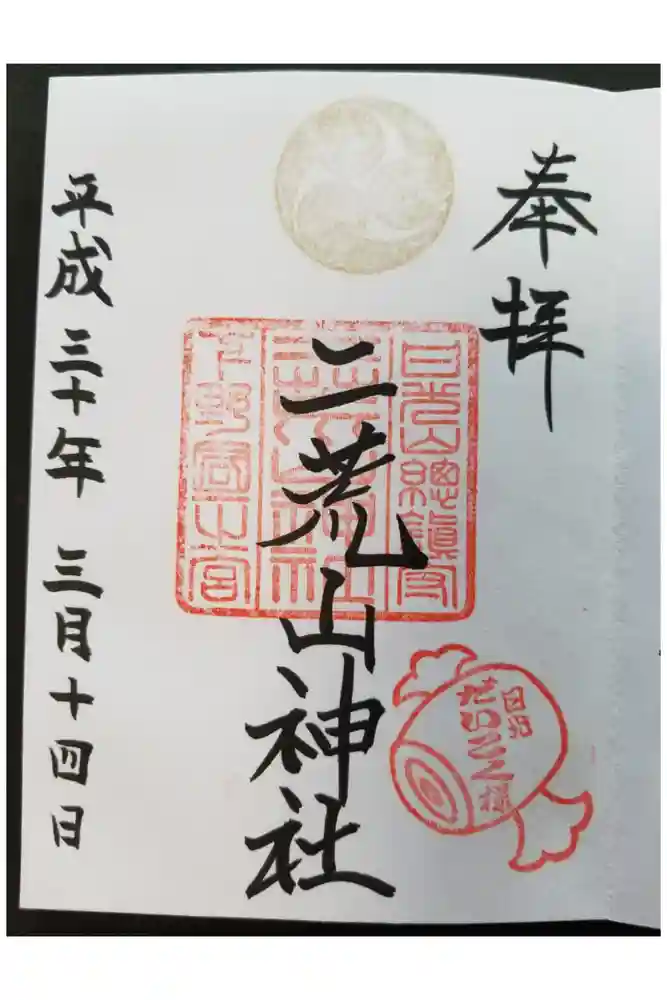 奉拝
日光山總鎮守
二荒山神社
二荒山神社
下野國一之宮
日光
だいこく様
平成三十年 三月十四日